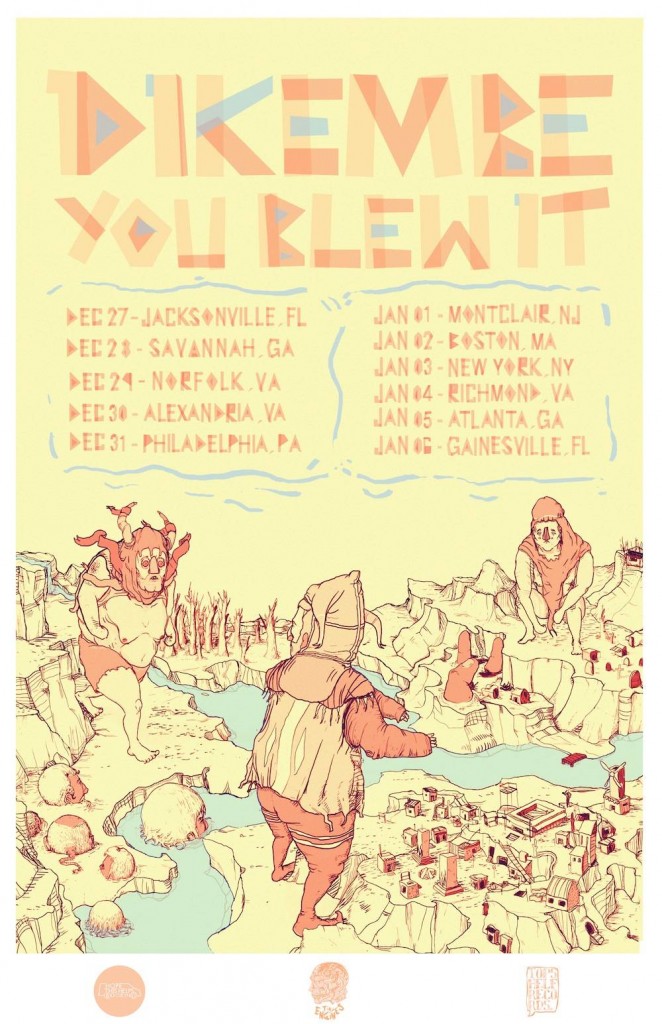 DIKEMBE
YOU BLEW IT
DEC 27 - JACKSONVILLE, FL
DEC 28 - SAVANNAH, GA
DEC 29 - NORFOLK, VA
DEC 30 - ALEXANDRIA, VA
DEC 31 - PHILADELPHIA, PA
JAN 01 - MONTCLAIR, NJ
JAN 02 - BOSTON, MA
JAN 03 - NEW YORK, NY
JAN 04 - RICHMOND, VA
JAN 05 - ATLANTA, GA
JAN 06 - GAINESVILLE, FL
TINY ENGINES
TOPSHELF RECORDS